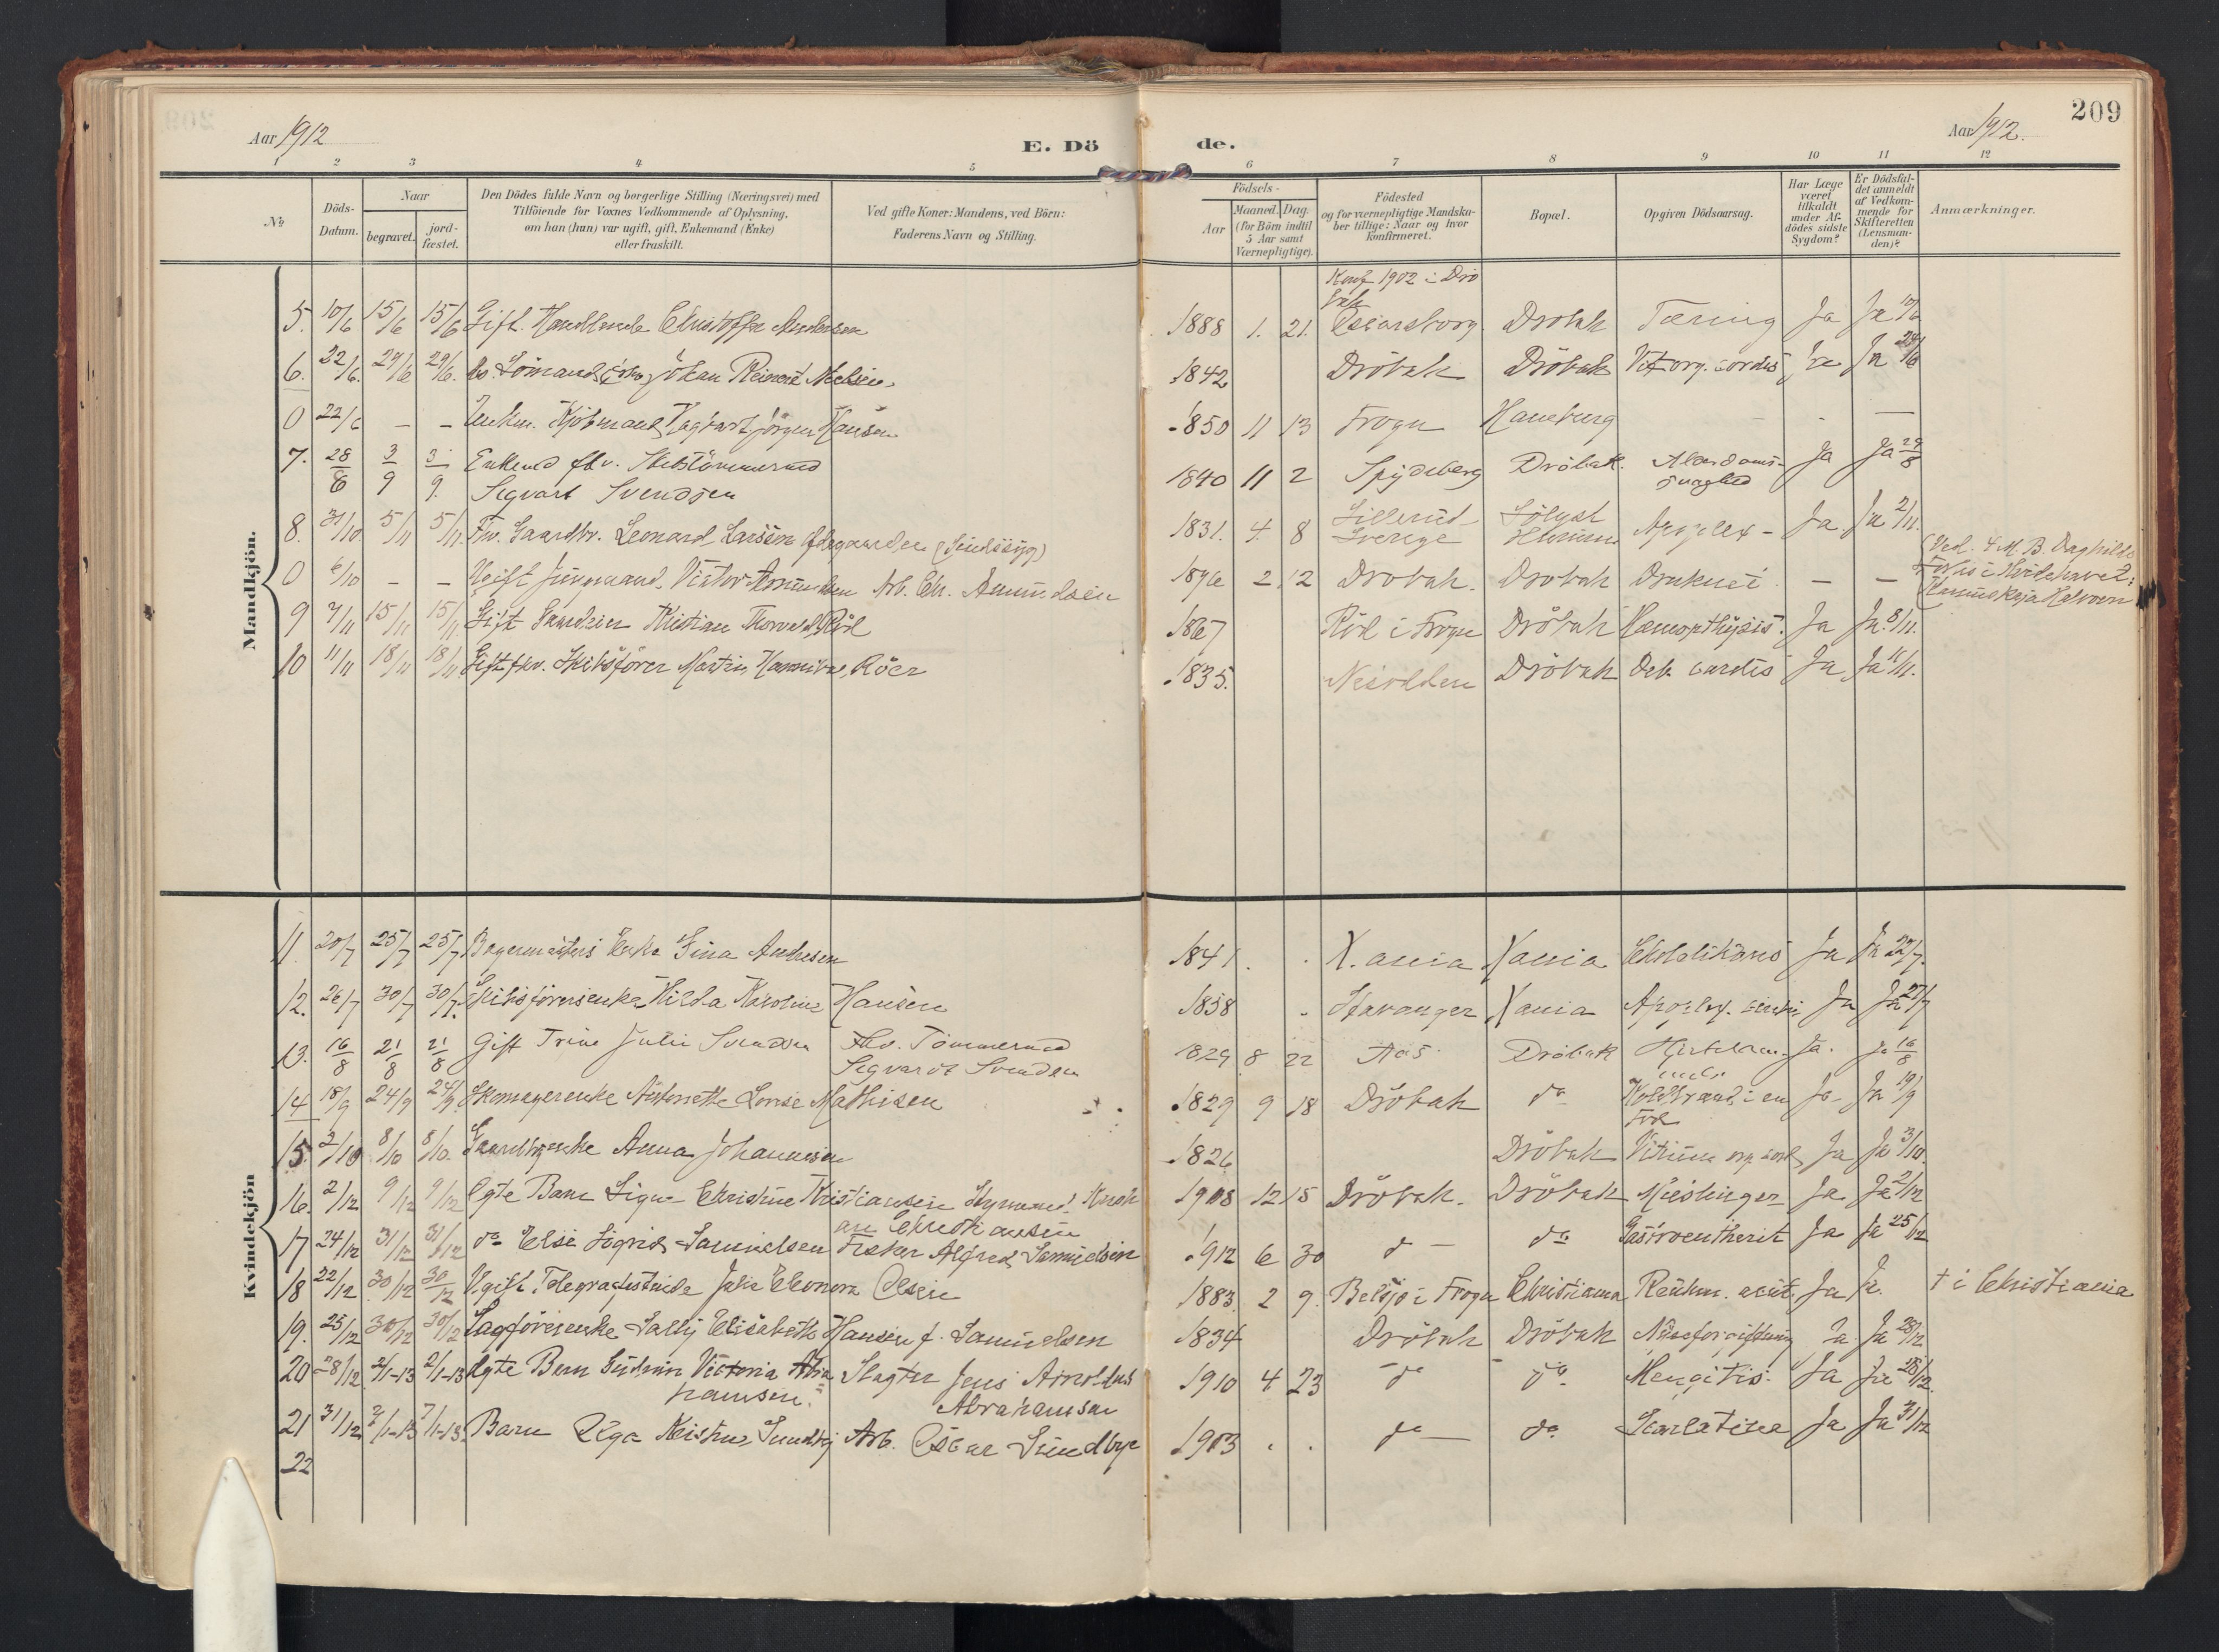 209
Aar 1912
E. Döde.
Aar 1912.
1 2 3 4 5 6 7 8 9 10 11 12
№
Döds-Datum.
Naar
begravet.
jord-fæstet.
Den Dödes fulde Navn og borgerlige Stilling (Næringsvei) med
Tilföiende for Voxnes Vedkommende af Oplysning,
om han (hun) var ugift, gift, Enkemand (Enke)
eller fraskilt.
Ved gifte Koner: Mandens, ved Börn:
Faderens Navn og Stilling.
Födsels-
Aar
Maaned. Dag.
(for Börn indtil
5 Aar samt
Værnepligtige).
Födested
og for værnepligtige Mandska-
ber tillige: Naar og hvor
konfirmeret.
Bopæl.
Opgiven Dödsaarsag.
Har Læge
været
tilkaldt
under Af-
dödes sidste
Sygdom?
Er Dödsfal-
det anmeldt
af Vedkom-
mende for
Skifteretten
(Lensman-
den)?
Anmærkninger.
Mandkjön.
Konf 1902 i Drö
bak
5. 10/6 15/6 15/6 Gift. Handlende Christoffer Andersen 1888 1. 21. Drøbak Tæring Ja Ja
6. 22/6. 29/6 29/6. Johan Nielsen 1842 Dröbak Dröbak Vit. org. cordis Ja Ja
0 22/6 – – Enkem. Kjöbmand Jörgen Hansen 1850 11 13 Frogn Hamburg –
7. 28/8 3/9 3/9. Enkemd fhv. Skibstömmermd 1840 11 2 Spydeberg Dröbak. Alderdoms- Ja Ja 29/8
Segvart Svendsen svaghed
8. 31/10 5/11 5/11. Fhv. Gaardbr. Leonard Larsen (Sindssyg) 1831. 4. 8 Sverige Apoplex – Ja. Ja 2/11.
0 6/10 – – Ugift Jungmand. Victor Amundsen Arb. Chr. Amundsen 1896 2 12 Dröbak. Dröbak Druknet – – Ved. 4 M. B. Daghild
9 7/11 15/11 15/11 Gift Kristian Thorvald Röd 1867 Röd i Frogn Dröbak Hæmopthysis. Ja Ja. 8/11.
10 11/11 18/11 18/11 Gift fhv. Skibsförer Martin Röer 1835. Nesodden Dröbak Deb. cardis Ja Ja 11/11.
Kvindekjön
11. 20/7 25/7 25/7 Bagermesters Enke Gina Andresen 1841. X.ania Xania Ja Ja 22/7.
12. 26/7 30/7 30/7. Skibsförersenke Hilda Karoline Hansen 1838 Stavanger Xania Ja Ja 27/7
13. 16/8 21/8 21/8 Gift Trine Julie Svendsen Fhv. Tömmermd 1829 8 22 Aas Dröbak Ja. Ja 16/8
Segvardt Svendsen
14 18/9 24/9 24/9. Skomagerenke Antonette Lovise Mathisen 1829 9 18 Dröbak do Koldbrand i en Ja Ja 19/9
Fod
15. 2/10 8/10 8/10. Anna Johannesen 1826 Dröbak Vitium org. cord. Ja Ja 3/10.
16. 2/12 9/12 9/12 Egte Barn Signe Christine Kristiansen 1908 12 15 Dröbak. Dröbak Meslinger Ja Ja 2/12
17 24/12 31/12 31/12 do Else Sigrid Samuelsen Fisker Alfred Samuelsen 1912 6 30 do – do Gastroentherit Ja Ja 25/12
18 22/12 30/12 30/12 Ugift Telegrafistinde Julie Eleonora Olsen 1883. 2 9. Belsjö i Frogn Christiania Reuhm. acut. Ja Ja. † i Christiania
19. 25/12 30/12 30/12 Sagförerenke Sally Elisabeth Hansen f. Samuelsen 1834 Dröbak Dröbak Ja. Ja 28/12
20 28/12 2/1-13 2/1-13 Egte Barn Gudrun Victoria Abra- Slagter Jens Arnoldus 1910 4 23 do do. Mengitis. Ja Ja 28/12.
hamsen. Abrahamsen
21 31/12 7/1-13 7/1-13. Barn Olga Kristine Sundby Arb. Oscar Sundbye 1903 . . do – do. Scarlatina Ja Ja 31/12
22